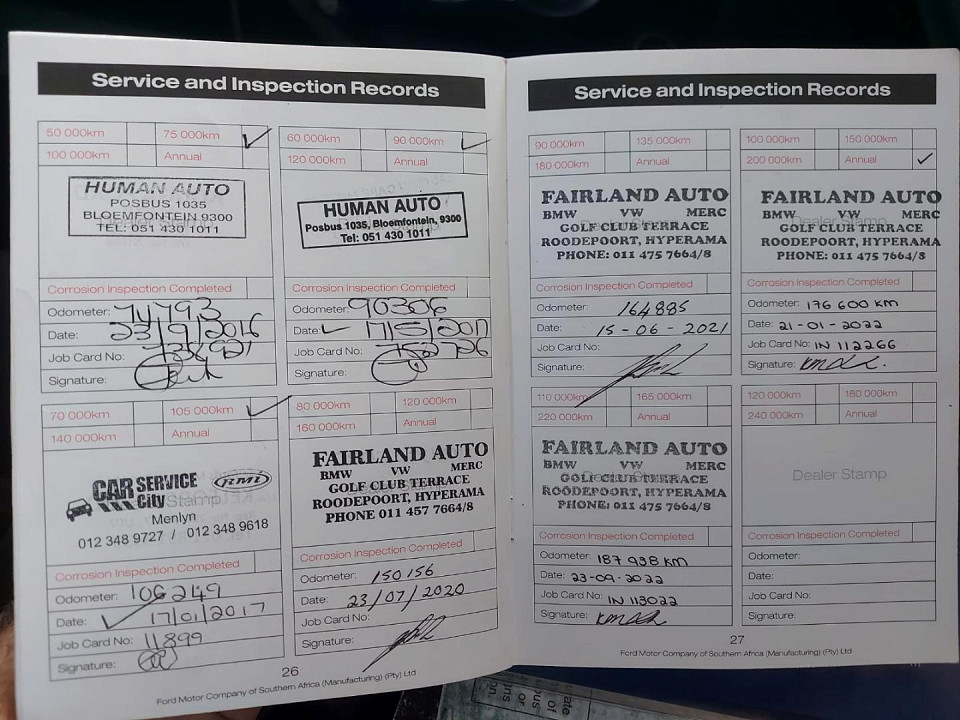 Service and Inspection Records
50 000km 75 000km ✓
100 000km Annual
HUMAN AUTO
POSBUS 1035
BLOEMFONTEIN 9300
TEL: 051 430 1011
Corrosion Inspection Completed
Odometer: 74793
Date: 23/9/2016
Job Card No:
Signature:
60 000km 90 000km ✓
120 000km Annual
HUMAN AUTO
Posbus 1035, Bloemfontein, 9300
Tel: 051 430 1011
Corrosion Inspection Completed
Odometer: 90306
Date: 17/5/2017
Job Card No: 752726
Signature:
70 000km 105 000km ✓
140 000km Annual
CAR SERVICE City
RMI
Stamp
Menlyn
012 348 9727 / 012 348 9618
Corrosion Inspection Completed
Odometer: 106249
Date: 17/01/2017
Job Card No: 11899
Signature:
80 000km 120 000km
160 000km Annual
FAIRLAND AUTO
BMW VW MERC
GOLF CLUB TERRACE
ROODEPOORT, HYPERAMA
PHONE 011 457 7664/8
Corrosion Inspection Completed
Odometer: 150156
Date: 23/07/2020
Job Card No:
Signature:
26
Ford Motor Company of Southern Africa (Manufacturing) (Pty) Ltd
Service and Inspection Records
90 000km 135 000km
180 000km Annual
FAIRLAND AUTO
BMW VW MERC
GOLF CLUB TERRACE
ROODEPOORT, HYPERAMA
PHONE: 011 475 7664/8
Corrosion Inspection Completed
Odometer: 164885
Date: 15-06-2021
Job Card No:
Signature:
100 000km 150 000km
200 000km Annual ✓
FAIRLAND AUTO
BMW VW MERC
Dealer Stamp
GOLF CLUB TERRACE
ROODEPOORT, HYPERAMA
PHONE: 011 475 7664/8
Corrosion Inspection Completed
Odometer: 176 600 KM
Date: 21-01-2022
Job Card No: IN 112266
Signature:
110 000km 165 000km
220 000km Annual
FAIRLAND AUTO
BMW VW MERC
Dealer Stamp
GOLF CLUB TERRACE
ROODEPOORT, HYPERAMA
PHONE: 011 475 7664/8
Corrosion Inspection Completed
Odometer: 187 938 KM
Date: 23-09-2022
Job Card No: IN 113022
Signature:
120 000km 180 000km
240 000km Annual
Dealer Stamp
Corrosion Inspection Completed
Odometer:
Date:
Job Card No:
Signature:
27
Ford Motor Company of Southern Africa (Manufacturing) (Pty) Ltd